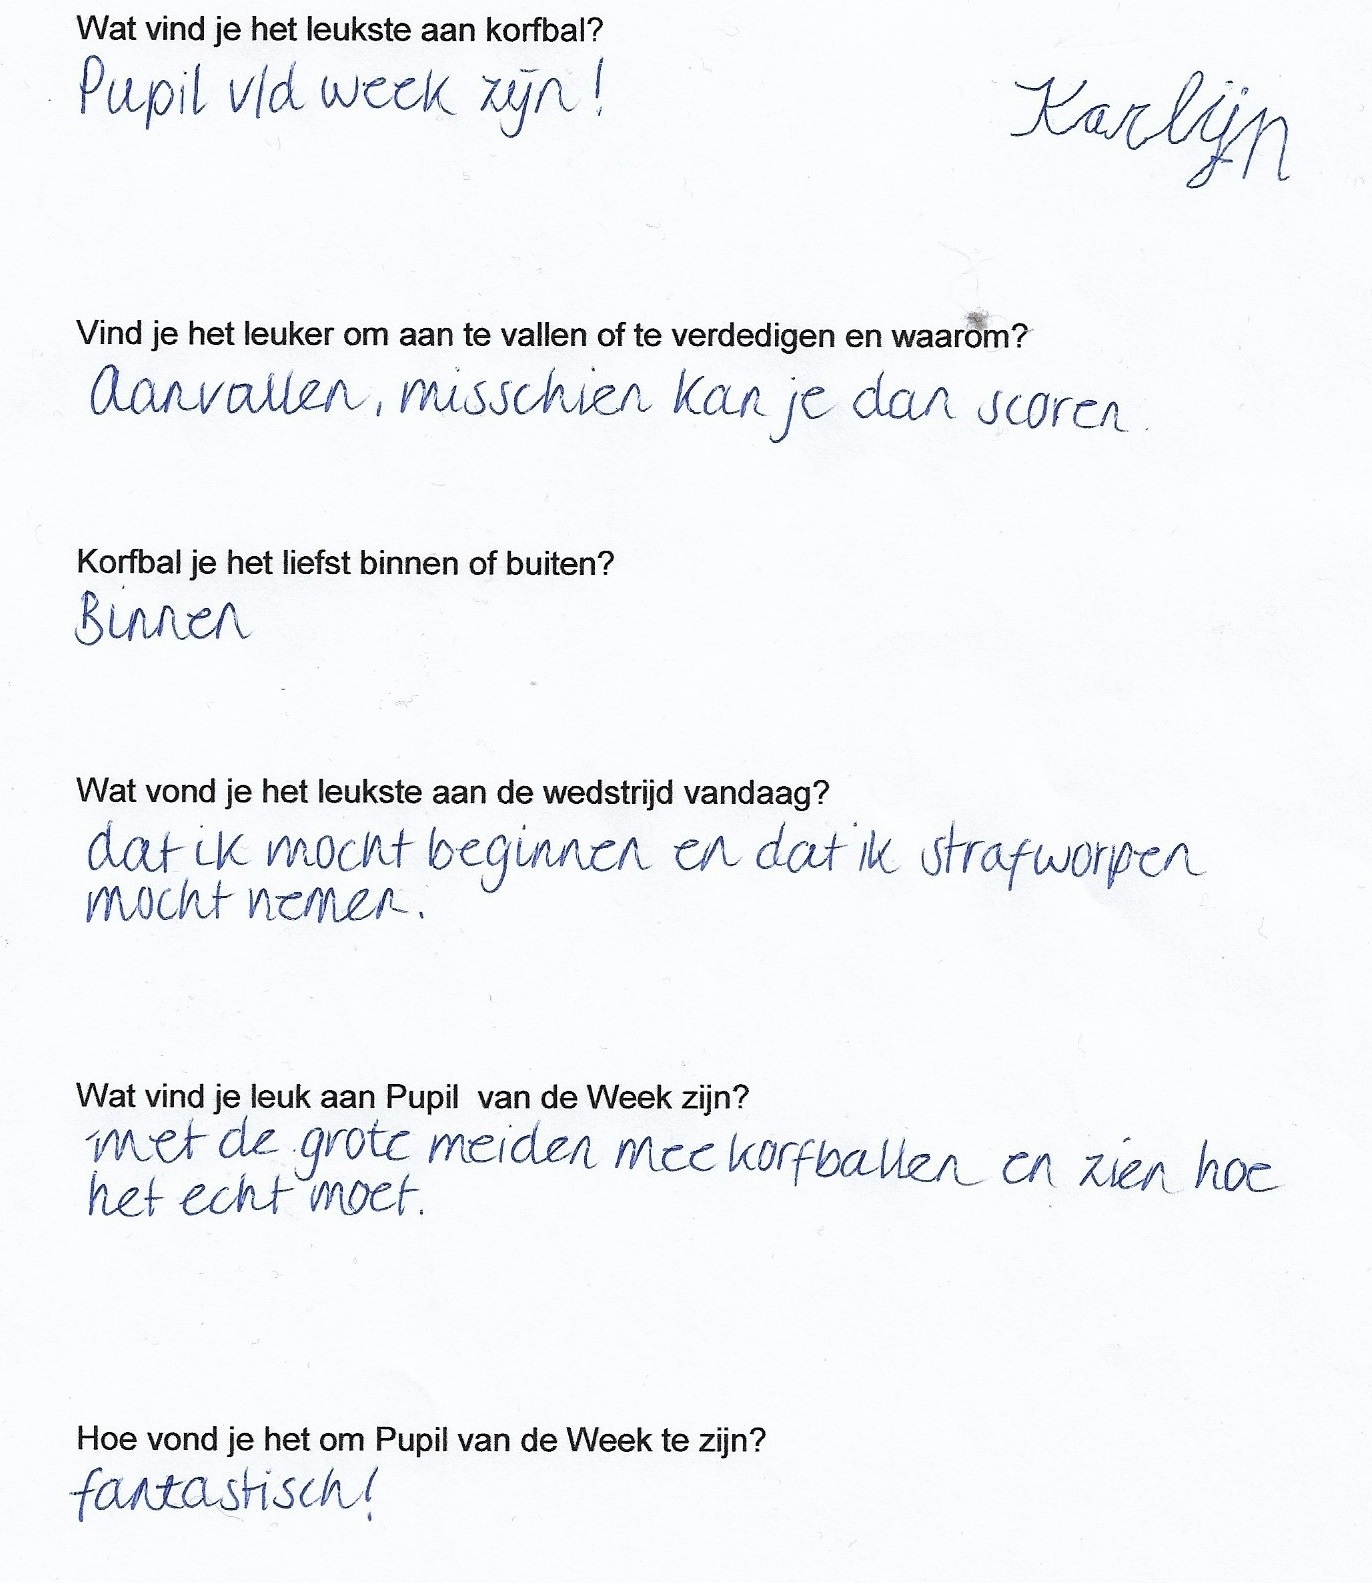 Wat vind je het leukste aan korfbal?
Pupil v/d week zijn!
Karlijn
Vind je het leuker om aan te vallen of te verdedigen en waarom?
Aanvallen, misschien kan je dan scoren.
Korfbal je het liefst binnen of buiten?
Binnen
Wat vond je het leukste aan de wedstrijd vandaag?
dat ik mocht beginnen en dat ik strafworpen
mocht nemen.
Wat vind je leuk aan Pupil  van de Week zijn?
met de grote meiden mee korfballen en zien hoe
het echt moet.
Hoe vond je het om Pupil van de Week te zijn?
fantastisch!